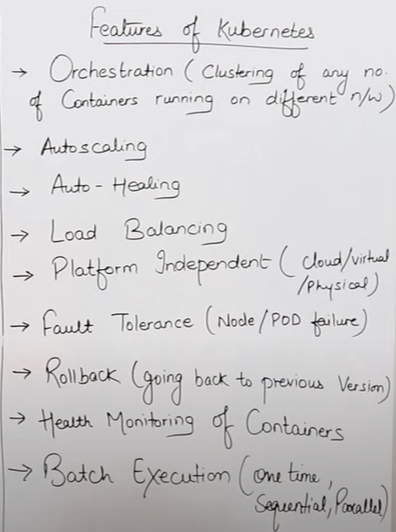 Features of Kubernetes
→ Orchestration (Clustering of any no.
of Containers running on different n/w)
→ Autoscaling
→ Auto-Healing
→ Load Balancing
→ Platform Independent (cloud/virtual
/Physical)
→ Fault Tolerance (Node/POD failure)
→ Rollback (going back to previous version)
→ Health Monitoring of Containers
→ Batch Execution (one time,
Sequential, Parallel)